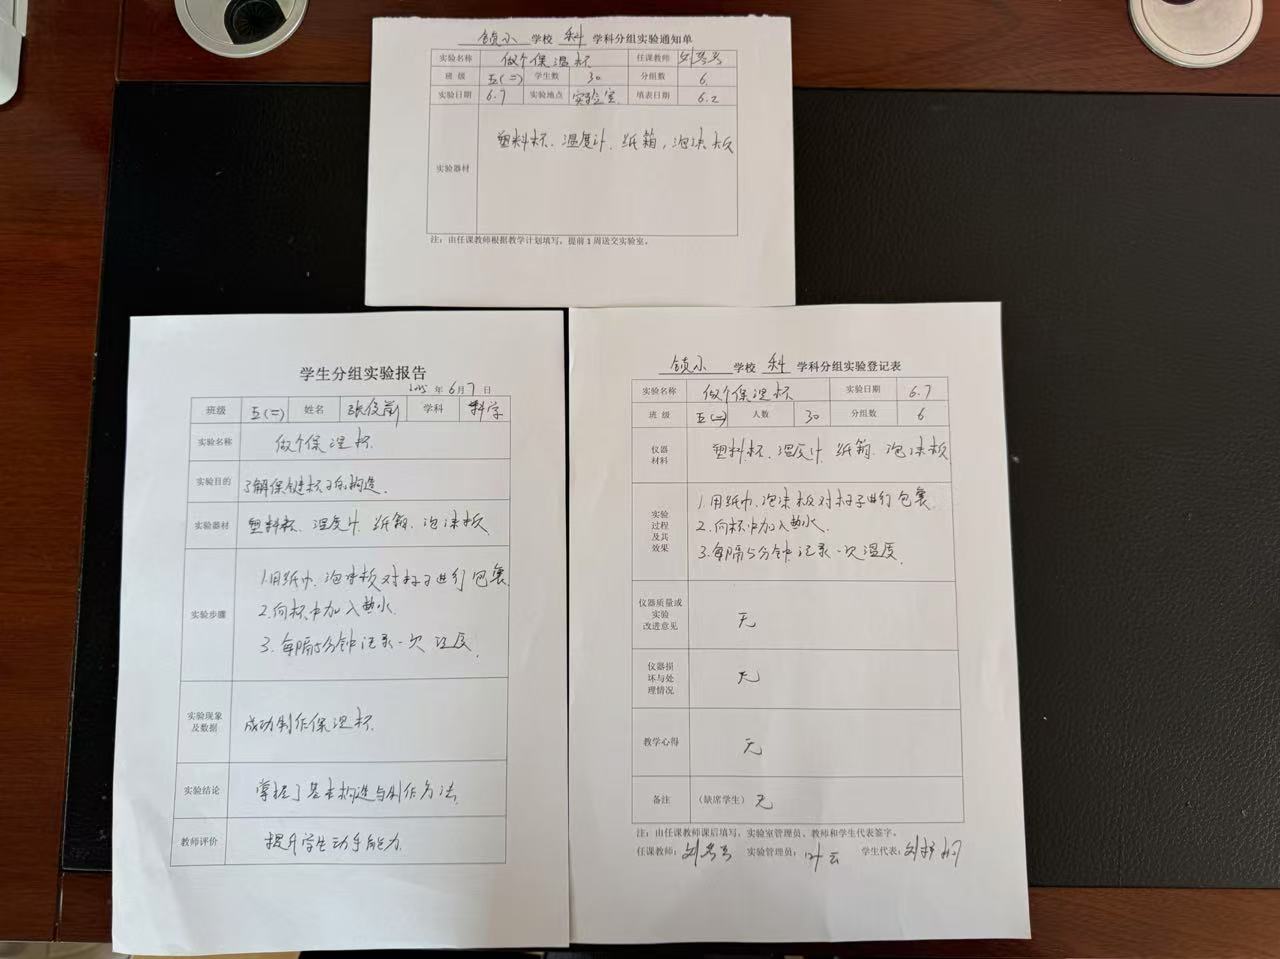 镇小 学校 科 学科分组实验通知单
实验名称 做个保温杯 任课教师
班 级 五(二) 学生数 30 分组数 6
实验日期 6.7 实验地点 实验室 填表日期 6.2
实验器材 塑料杯、温度计、纸箱,泡沫板
注:由任课教师根据教学计划填写,提前1周送交实验室。
学生分组实验报告
2025 年 6 月 7 日
班级 五(二) 姓名 学科 科学
实验名称 做个保温杯
实验目的 了解保键杯子的构造.
实验器材 塑料杯、温度计、纸箱、泡沫板
实验步骤
1.用纸巾、泡沫板对杯子进行包裹.
2.向杯中加入热水.
3.每隔5分钟记录一次温度.
实验现象
及数据
成功制作保温杯.
实验结论 掌握了基本构造与制作方法.
教师评价 提升学生动手能力.
镇小 学校 科 学科分组实验登记表
实验名称 做个保温杯 实验日期 6.7
班 级 五(二) 人数 30 分组数 6
仪器
材料
塑料杯、温度计、纸箱、泡沫板
实验
过程
及其
效果
1.用纸巾、泡沫板对杯子进行包裹.
2.向杯中加入热水.
3.每隔5分钟记录一次温度.
仪器质量或
实验
改进意见
无
仪器损
坏与处
理情况
无
教学心得 无
备注 (缺席学生) 无
注:由任课教师课后填写,实验室管理员、教师和学生代表签字。
任课教师: 实验管理员: 叶云 学生代表: